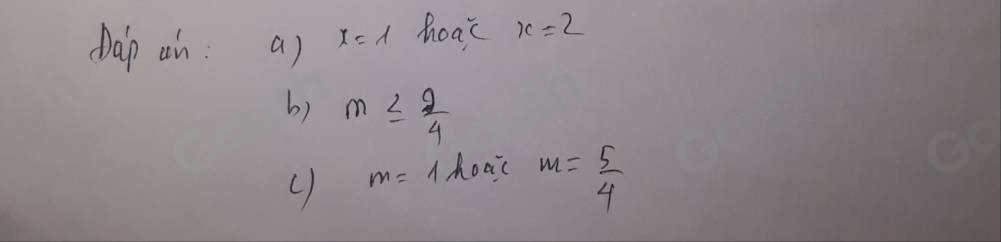 Đáp án : a) x = 1 hoặc x = 2
b) m ≤ 9/4
c) m = 1 hoặc m = 5/4